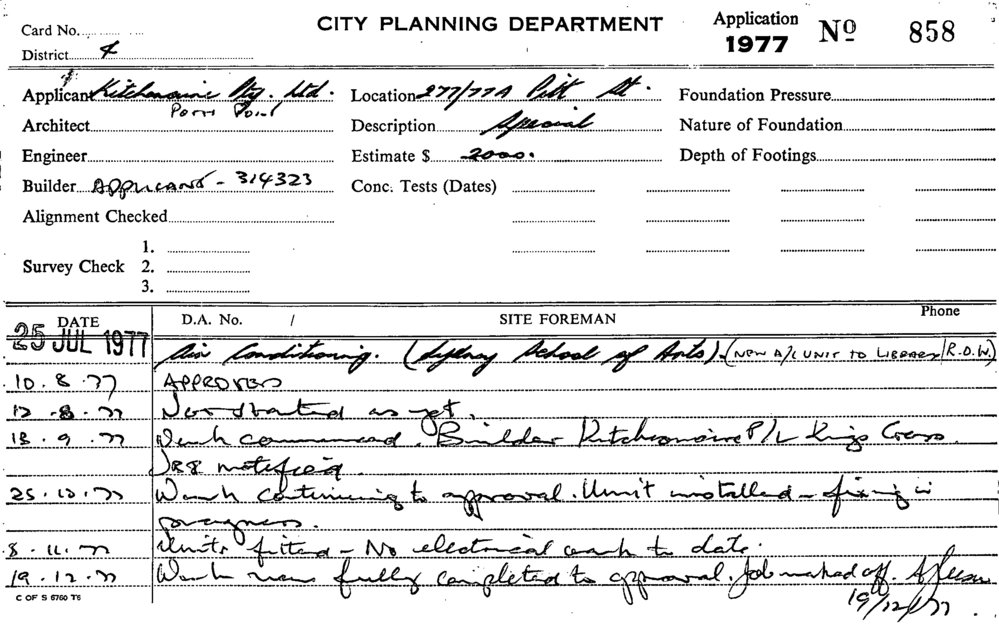 Card No.
CITY PLANNING DEPARTMENT
Application 1977 No 858
District 4
Applicant Kitchenaire Pty. Ltd. Location 277/77A Pitt St. Foundation Pressure
Potts Point
Architect Description Special Nature of Foundation
Engineer Estimate $ 2000. Depth of Footings
Builder APPLICANT - 314323 Conc. Tests (Dates)
Alignment Checked
1.
Survey Check 2.
3.
DATE D.A. No. / SITE FOREMAN Phone
25 JUL 1977 Air Conditioning. (Sydney School of Arts). (NEW A/C UNIT TO LIBRARY R.O.W.)
10.8.77 APPROVED
12.8.77 Not started as yet.
13.9.77 Work commenced. Builder Kitchenaire P/L Kings Cross.
notified.
25.10.77 Work continuing to approval. Unit installed - fixing in
progress.
8.11.77 Units fitted - No electrical work to date.
19.12.77 Work now fully completed to approval. Job marked off.
19/12/77.
C OF S 6760 T6